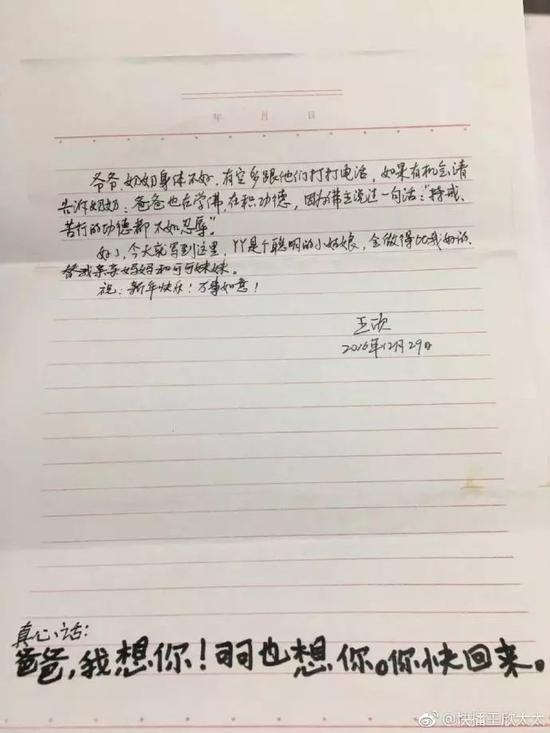 年 月 日
爷爷奶奶身体不好，有空多跟他们打打电话，如果有机会请
告诉奶奶，爸爸也在学佛，在积功德，因为佛主说过一句话：“持戒、
苦行的功德都不如忍辱。”
好了，今天就写到这里，YY是个聪明的小姑娘，会做得比我好的。
替我亲亲妈妈和可可妹妹。
祝：新年快乐！万事如意！
王欣
2016年12月29日
真心话：
爸爸，我想你！可可也想你。你快回来。
@快播王欣太太